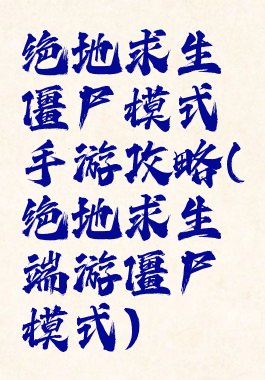 绝地求生
僵尸模式
手游攻略(
绝地求生
端游僵尸
模式)